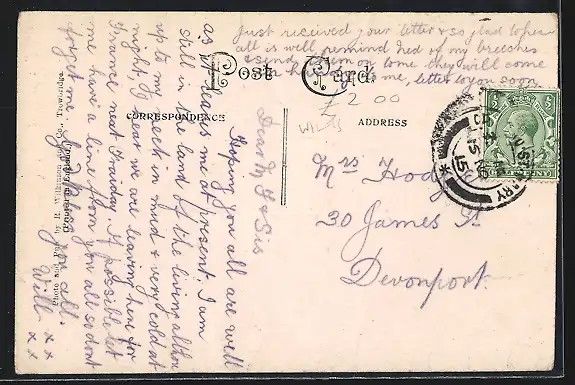 Just received your letter & so glad to hear
all is well, remind Ned of my breeches
send them on to me they will come
in handy to me, letter to you soon
Post Card
£2.00
WILTS
CORRESPONDENCE
ADDRESS
Dear M & Sis
Hoping you all are well
as it leaves me at present. I am
still in the land of the living altho
up to my neck in mud & very cold at
night. I hear we are leaving here for
France next Friday. If possible let
me have a line from you all so dont
forget me. God bless you all.
Will x x
x x
Photo and Pub. by R. Wilkinson & Co., Trowbridge.
Mrs
30 James St
Devonport.
15 NO
15
HALFPENNY